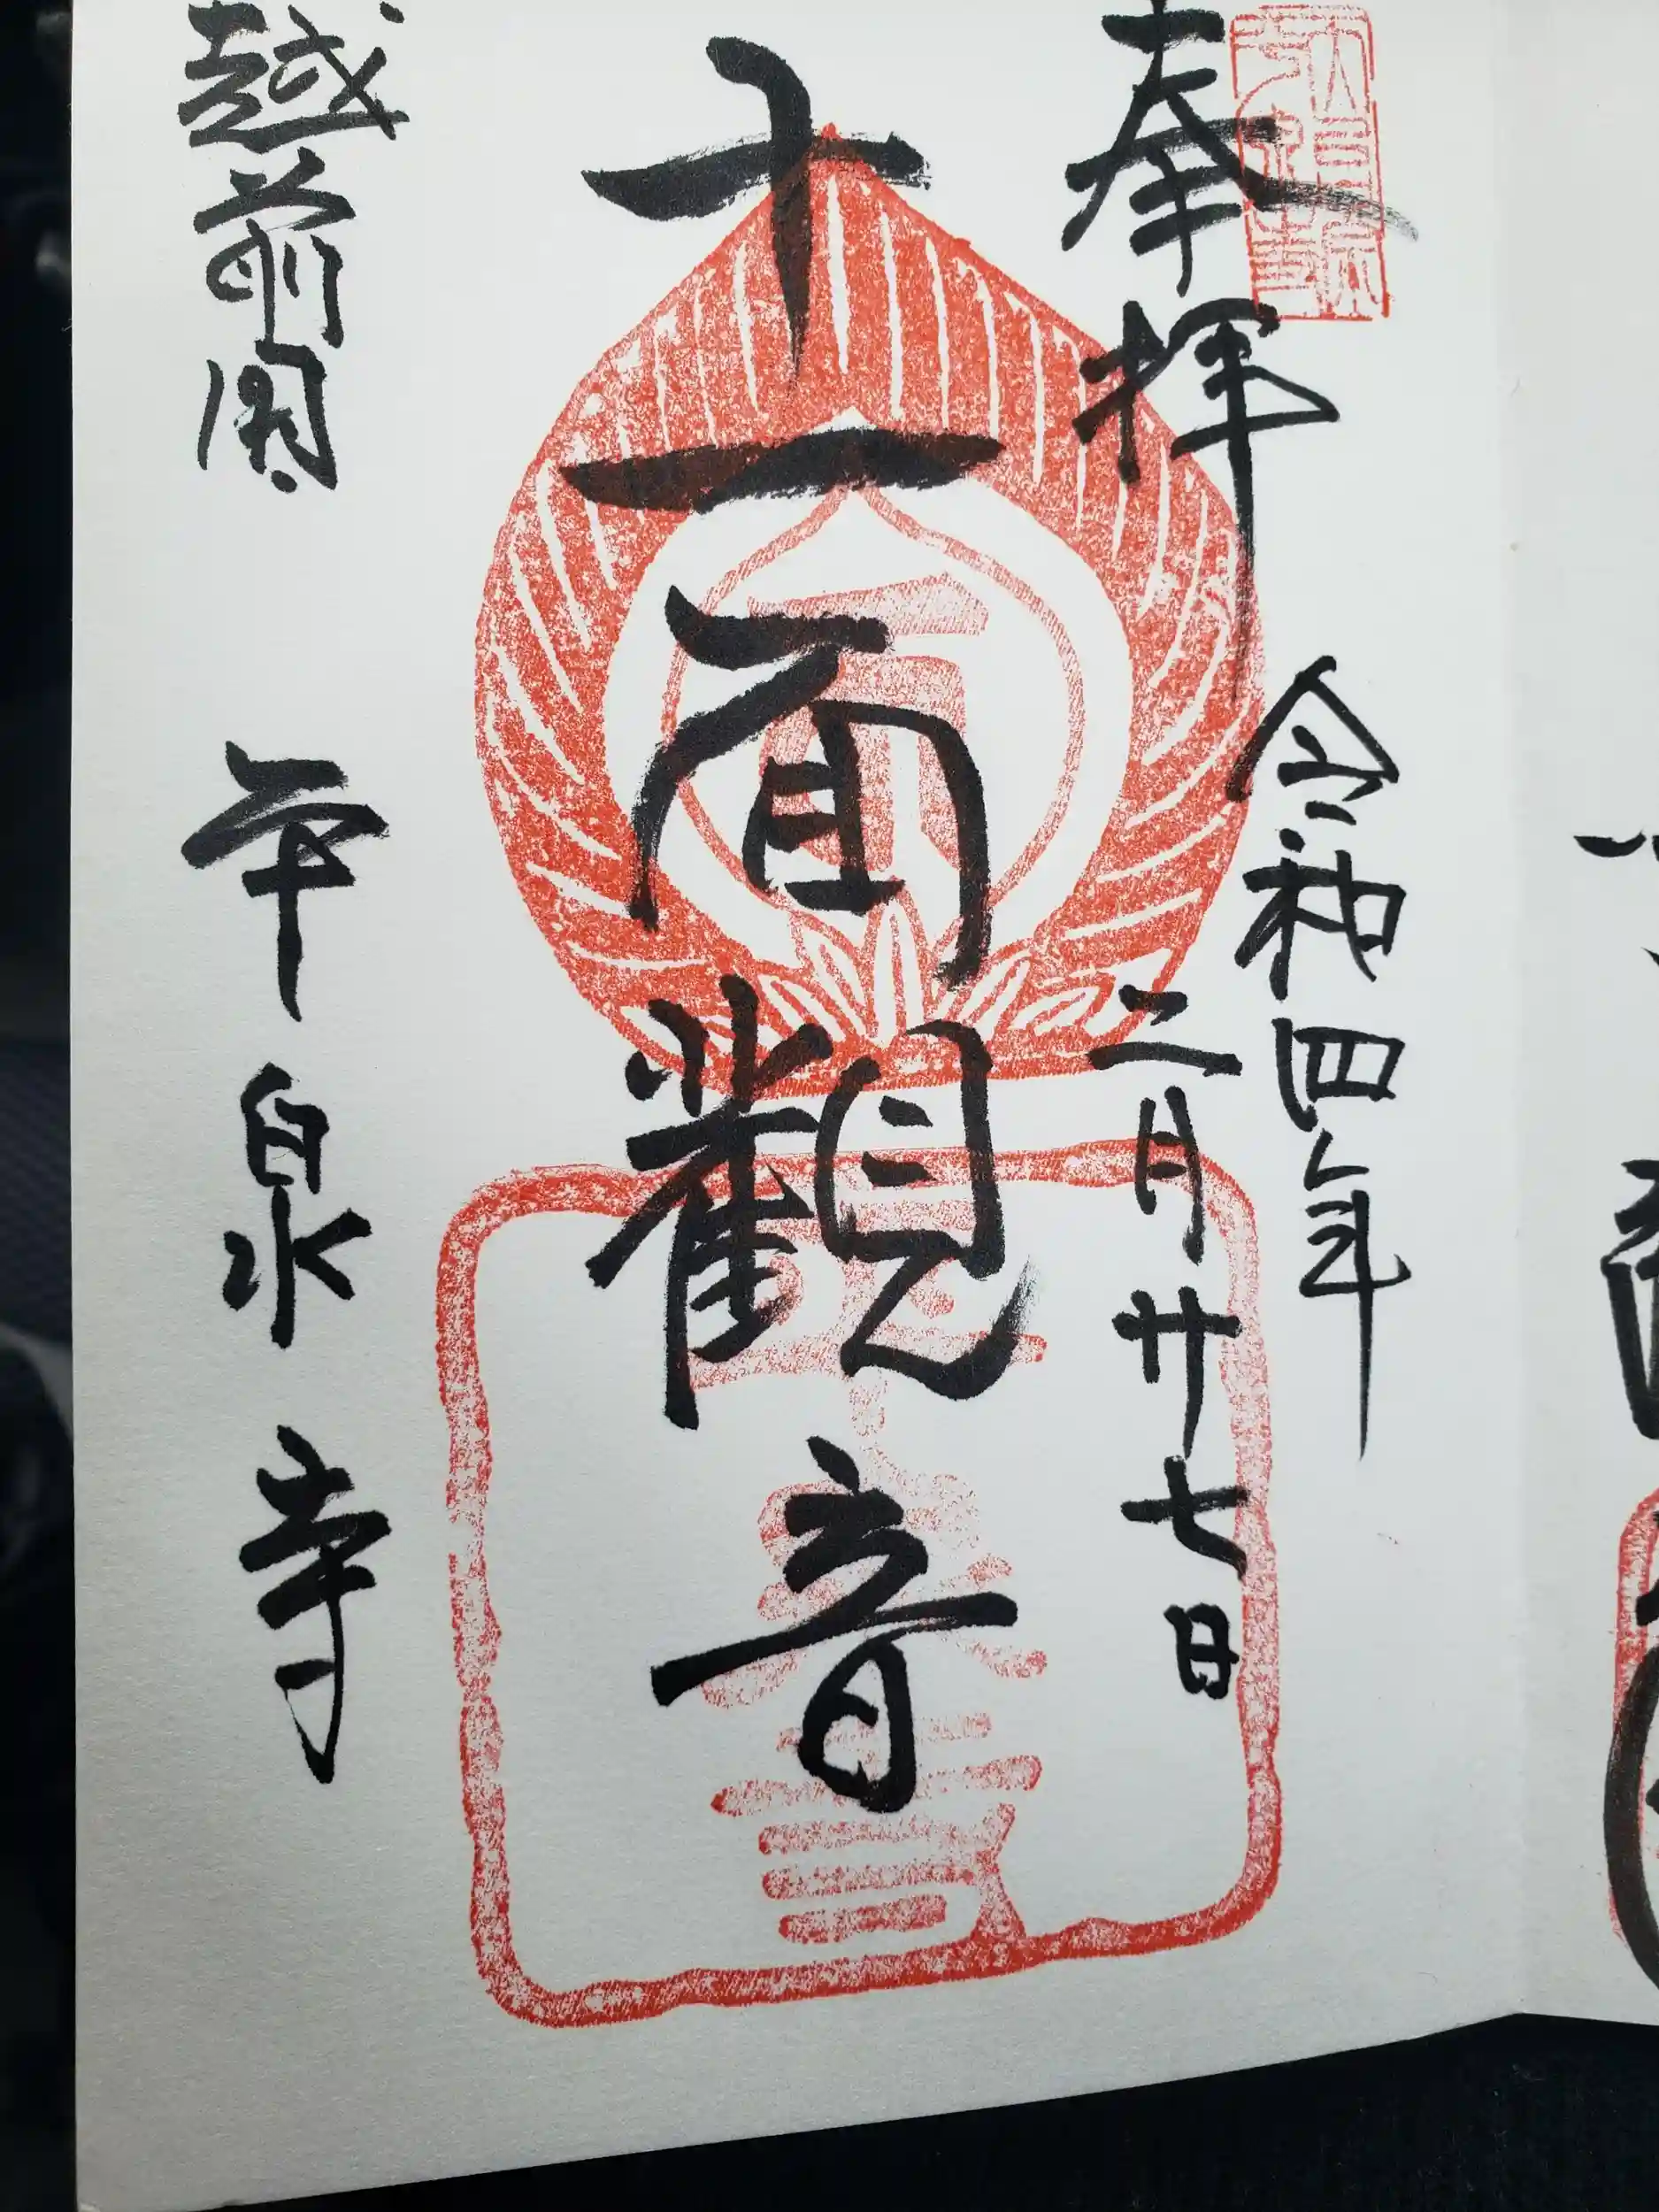 奉拝
令和四年
二月廿七日
十一面觀音
越前国 平泉寺